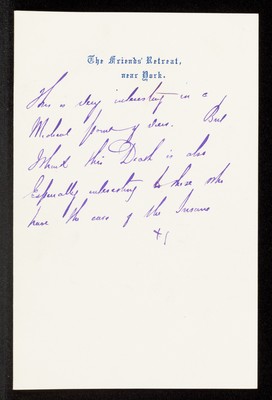 The Friends' Retreat,
near York.
This is very interesting in a
Medical point of view. But
I think this Death is also
Especially interesting to those who
have the care of the Insane